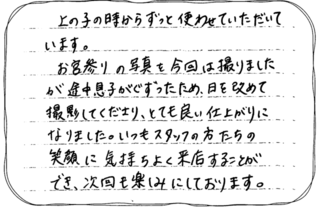 上の子の時からずっと使わせていただいて
います。
お宮参りの写真を今回は撮りました
が途中息子がぐずったため、日を改めて
撮影してくださり、とても良い仕上がりに
なりました。いつもスタッフの方たちの
笑顔に気持ちよく来店することが
でき、次回も楽しみにしております。